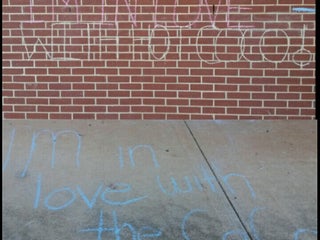 I'M IN LOVE
WITH COCO
I'm in
love with
the